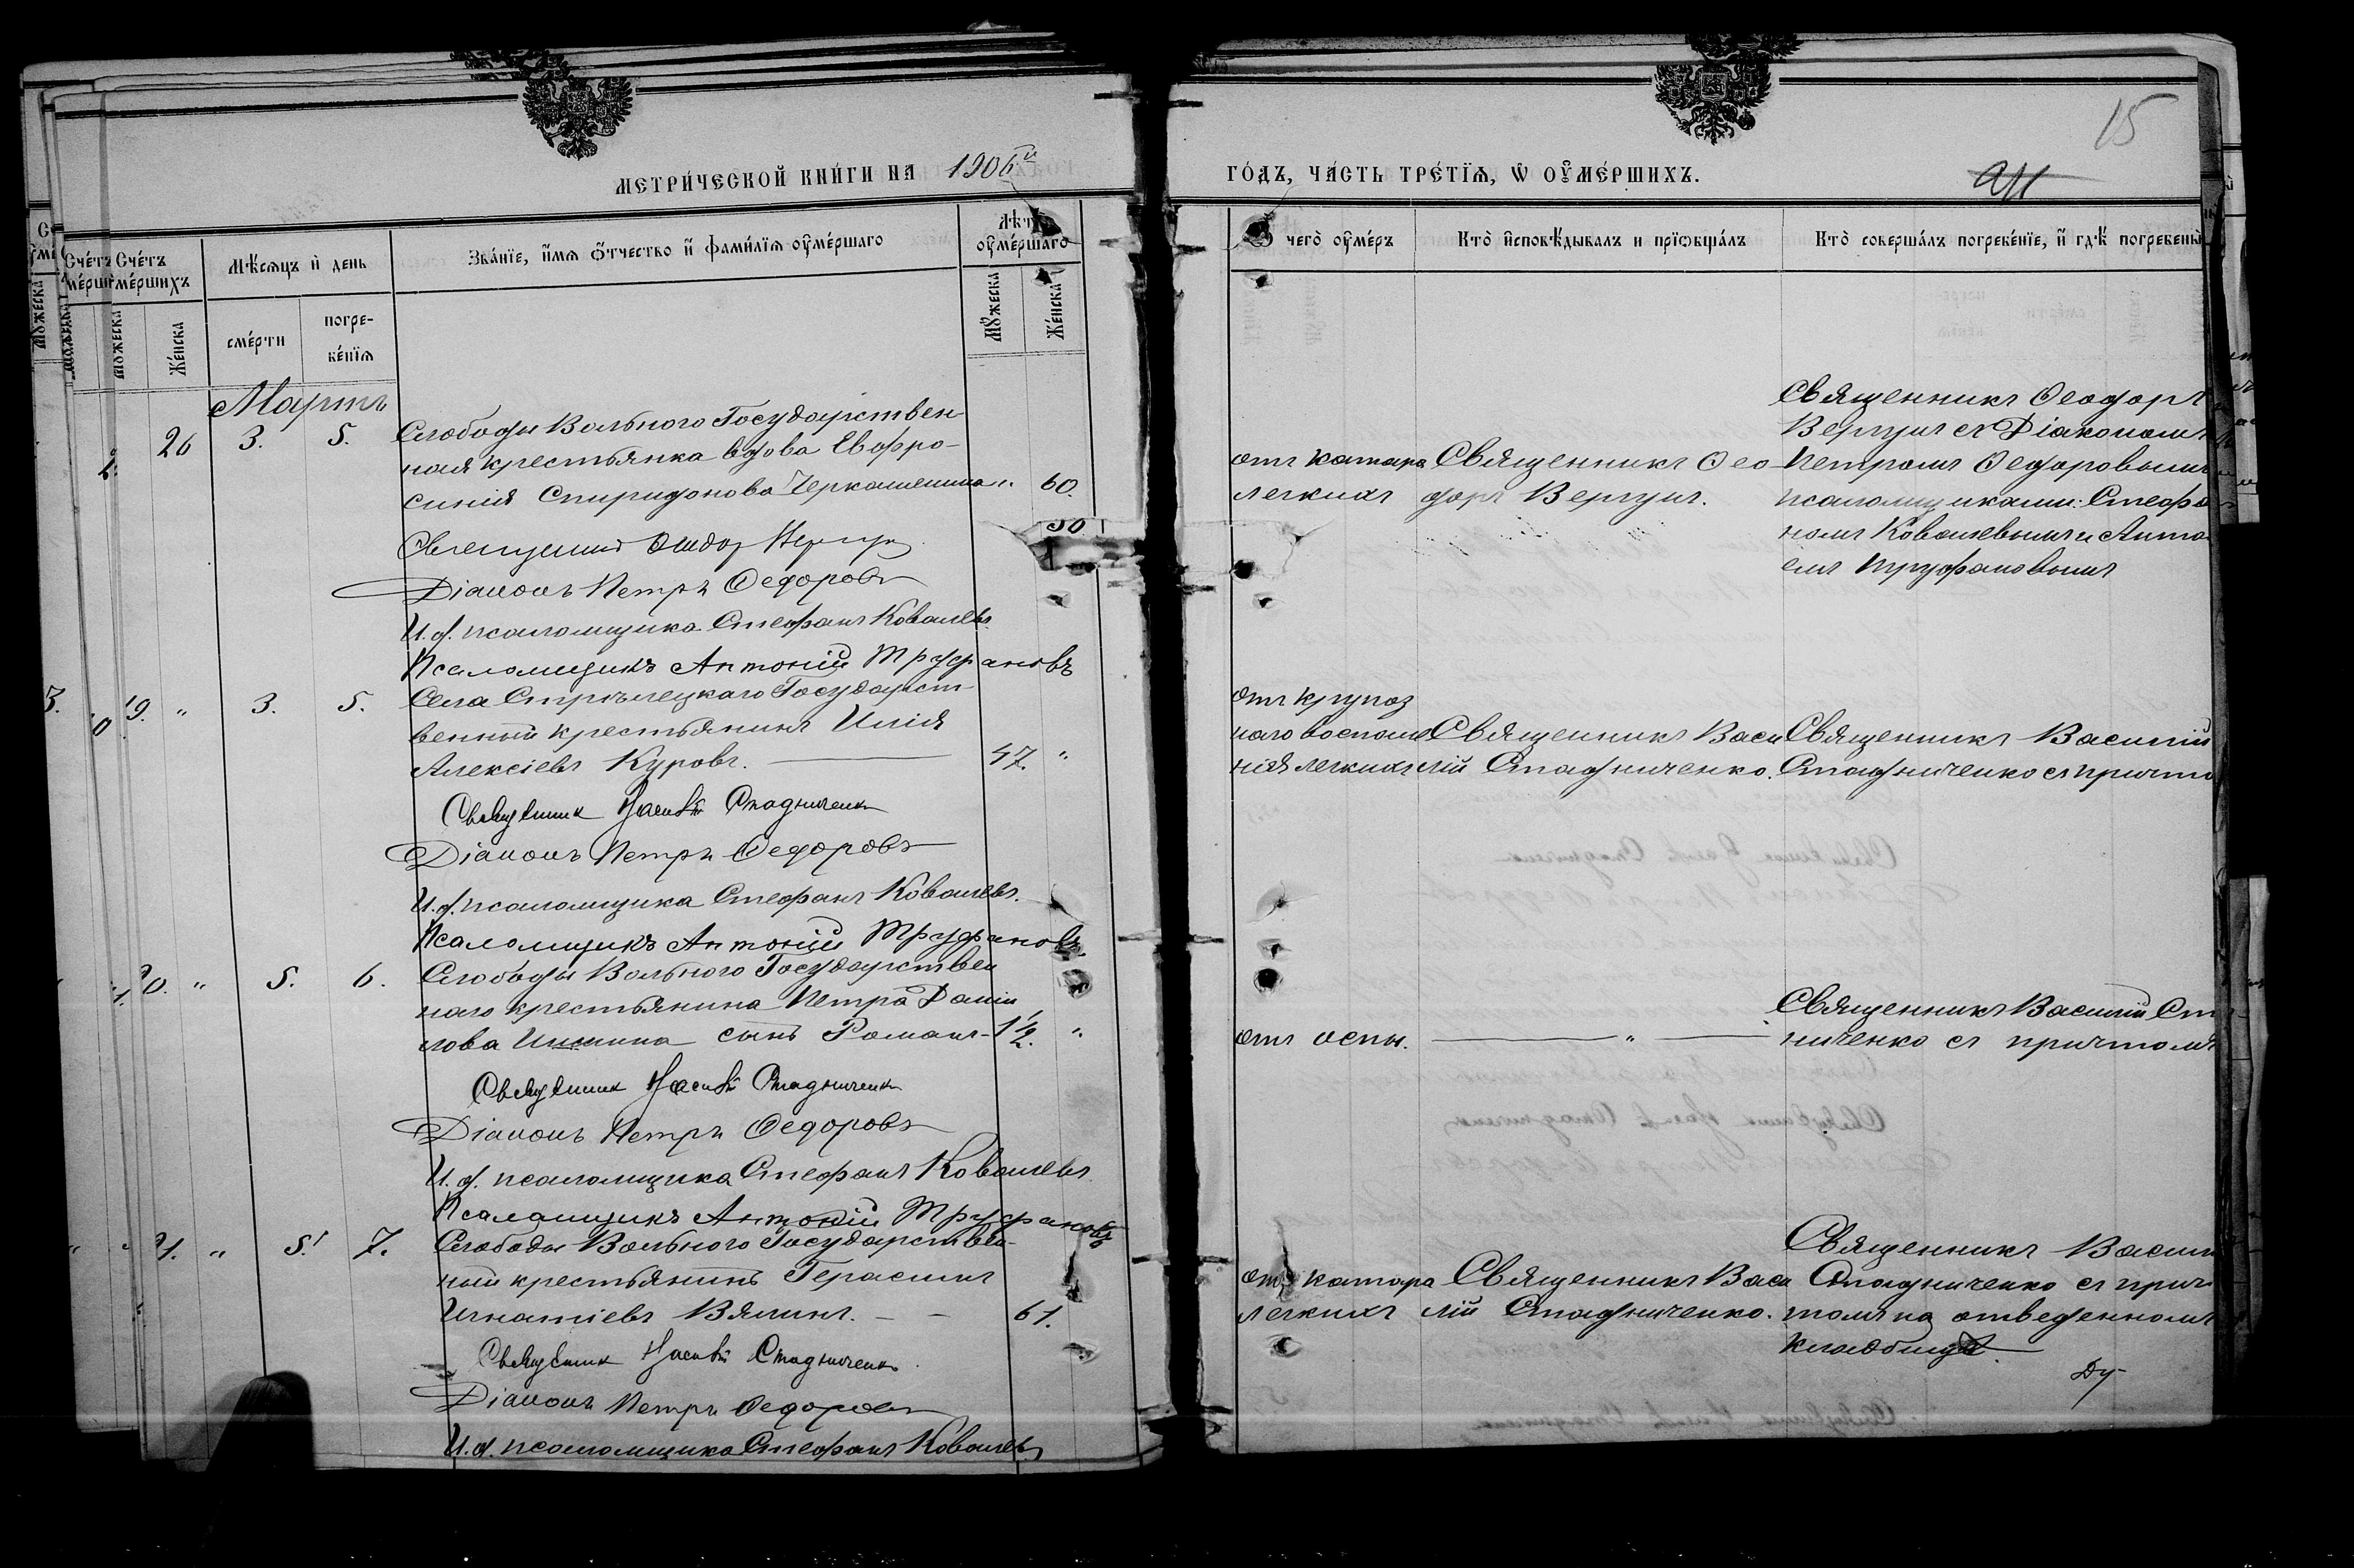 15
МЕТРИ́ЧЕСКОЙ КНИ́ГИ НА 1906й
ГО́ДЪ, ЧА́СТЬ ТРЕ́ТІѦ, Ѡ ОУ҆МЕ́РШИХЪ.
Сче́тъ Сче́тъ
ме́рши ме́ршихъ
Мѣ́сяцъ и҆ день
Зва́нїе, и҆́мѧ ѻ҆́тчество и҆ фами́лїѧ оу҆ме́ршаго
Лѣта
оу҆ме́ршаго
Мꙋ́жеска
Же́нска
сме́рти
погре-
бе́нїѧ
Мꙋ́жеска
Же́нска
чего̀ оу҆ме́ръ
Кто̀ и҆сповѣ́дывалъ и прїѡбща́лъ
Кто̀ соверша́лъ погребе́нїе, и҆ гдѣ̀ погребены̀
Мартъ
26 3. 5. Слободы Вольного Государствен-
ная крестьянка вдова Евфро-
синія Спиридонова Черкашенина " 60.
отъ катара
легкихъ
Священникъ Ѳео-
доръ Вергунъ.
Священникъ Ѳеодоръ
Вергунъ съ Діакономъ
Петромъ Ѳедоровымъ
псаломщиками: Стефа
номъ Ковалевымъ и Анто
емъ Труфановымъ
Священникъ Ѳеодор Вергун
Діаконъ Петръ Ѳедоровъ
И.д. псаломщика Стефанъ Ковалевъ.
Псаломщикъ Антоній Труфановъ
19. " 3. 5. Села Стрѣлецкаго Государст-
венный крестьянинъ Илія
Алексіевъ Куровъ. 47. "
отъ крупоз
наго воспале
нія легкихъ
Священникъ Васи
лій Стадниченко.
Священникъ Василій
Стадниченко съ причто
Священник Василій Стадниченко
Діаконъ Петръ Ѳедоровъ
И.д. псаломщика Стефанъ Ковалевъ.
Псаломщикъ Антоній Труфановъ
20. " 5. 6. Слободы Вольного Государствен
наго крестьянина Петра Даніи
лова Иншина сынъ Романъ - 1½. "
отъ оспы. "
Священникъ Василій Ста
ниченко съ причтомъ
Священник Василій Стадниченко
Діаконъ Петръ Ѳедоровъ
И.д. псаломщика Стефанъ Ковалевъ.
Псаломщикъ Антоній Труфановъ
21. " 5. 7. Слободы Вольного Государствен-
ный крестьянинъ Герасимъ
Игнатіевъ Вялинъ. 61.
отъ катара
легкихъ
Священникъ Васи
лій Стадниченко.
Священникъ Васили
Стадниченко съ прич
томъ на отведенномъ
кладбищѣ
Священник Василій Стадниченко
Діаконъ Петръ Ѳедоровъ
И.д. псаломщика Стефанъ Ковалевъ